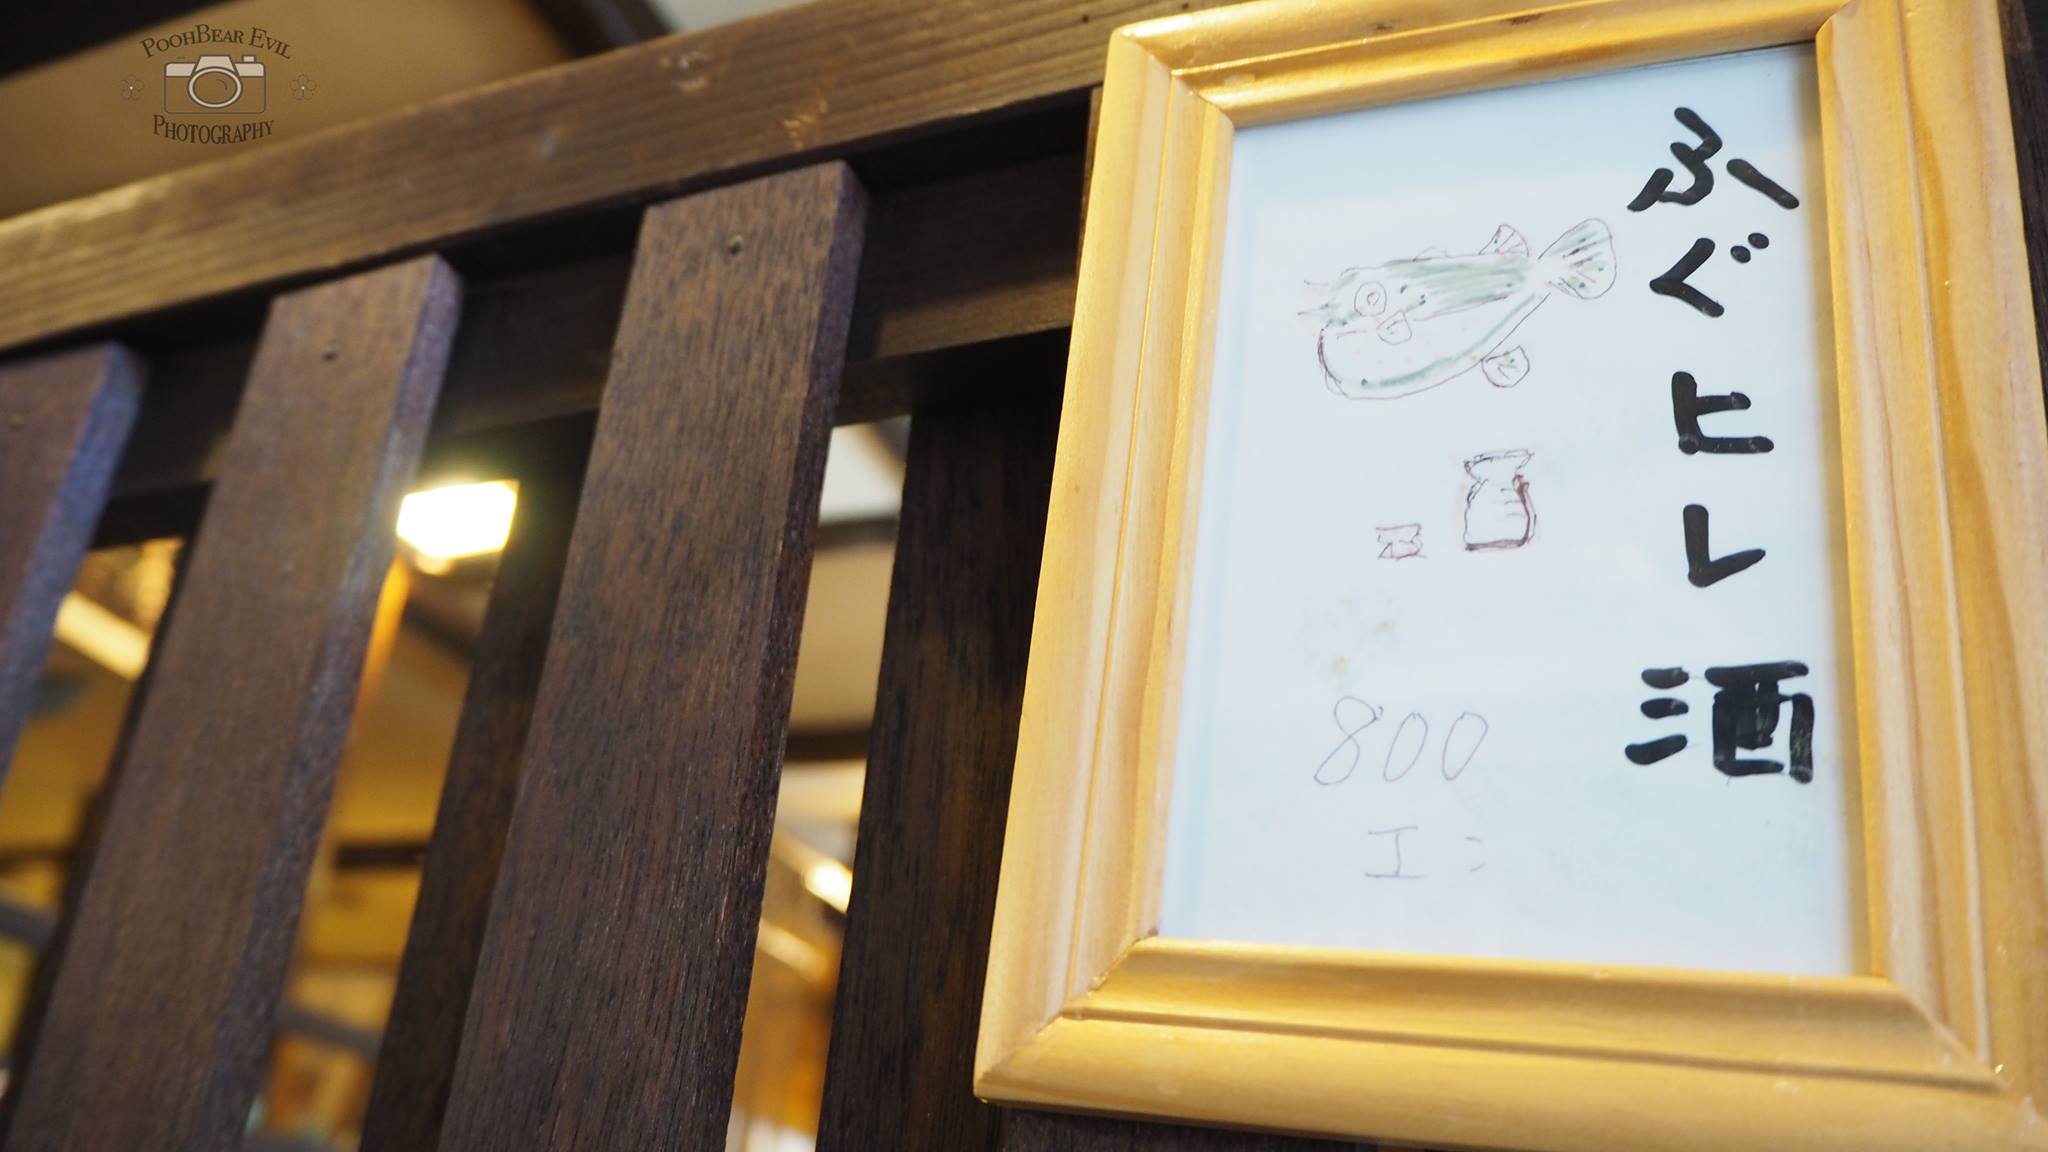 PoohBear Evil
Photography
ふぐヒレ酒
800
エン